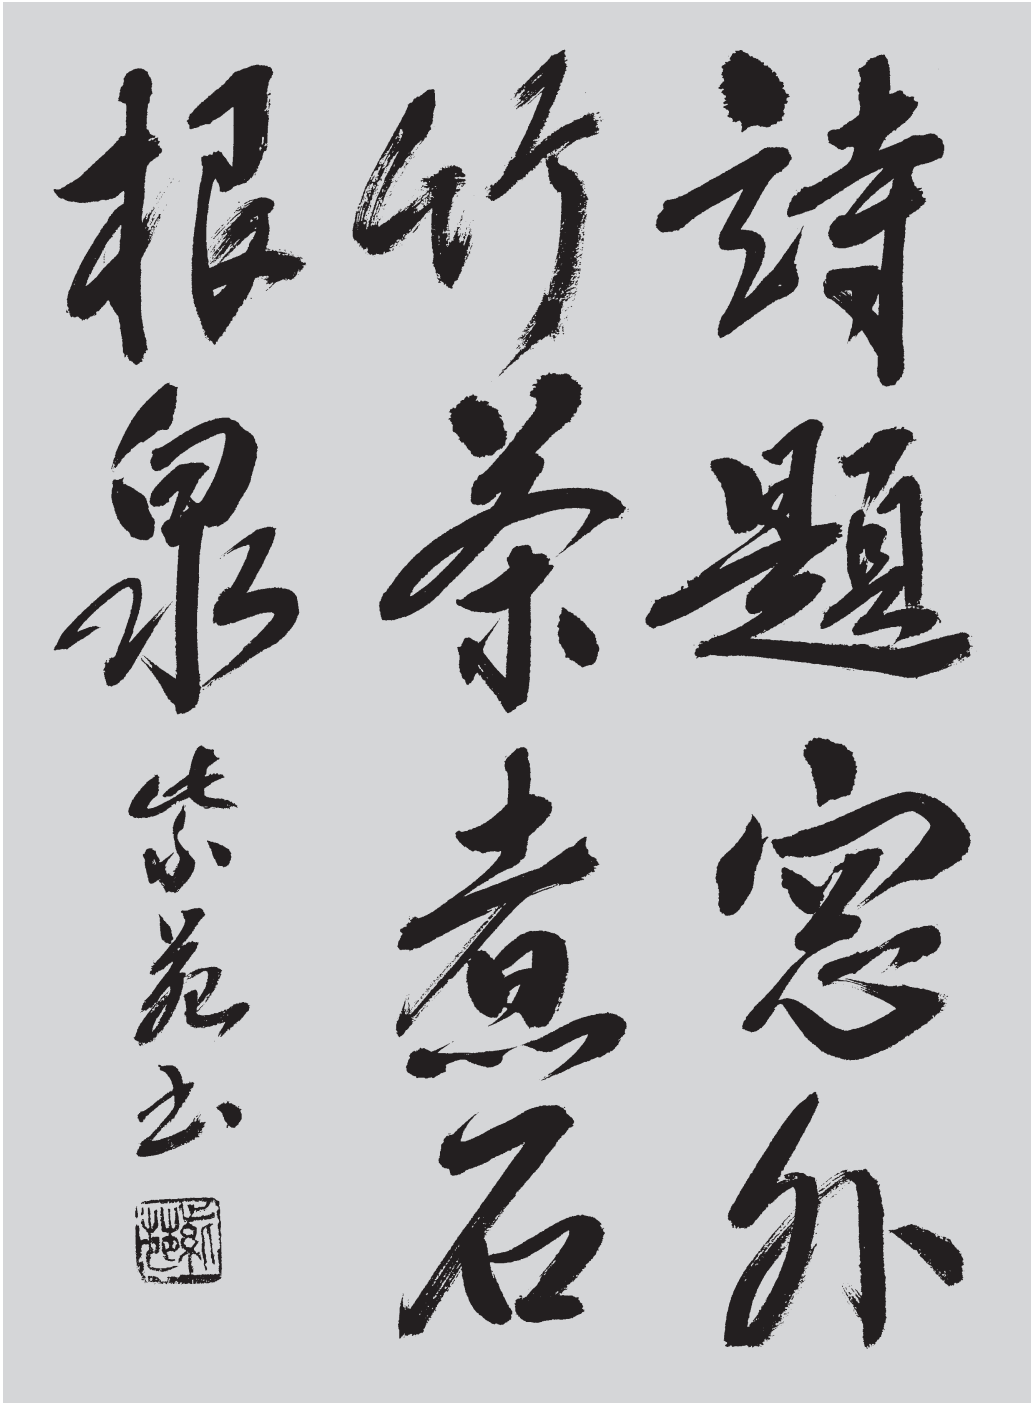 詩題窓外
竹茶煮石
根泉
紫苑书
紫苑